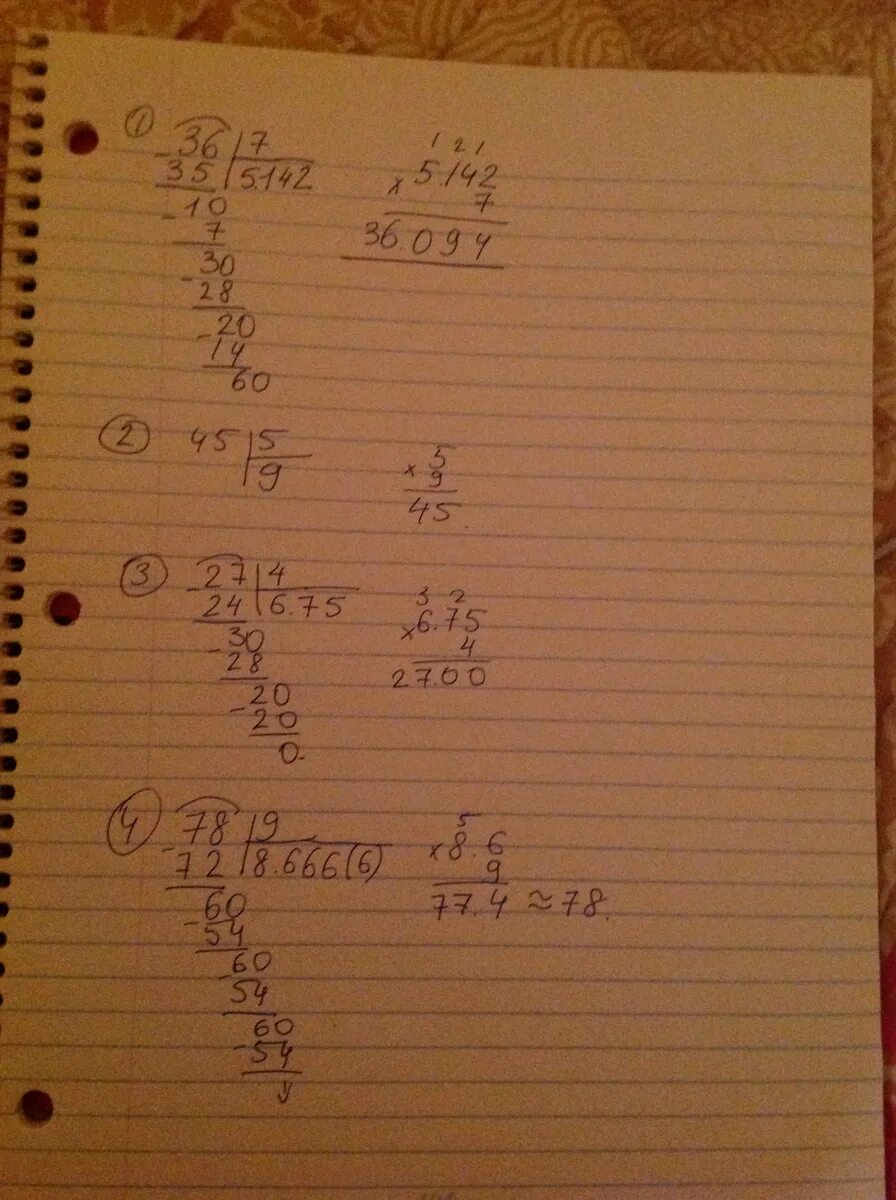 1
-36 | 7
35 | 5.142
-10
7
-30
28
-20
14
60
1 2 1
x 5.142
7
36.094
2
45 | 5
9
x 5
9
45.
3
-27 | 4
24 | 6.75
-30
28
-20
20
0.
3 2
x 6.75
4
27.00
4
-78 | 9
72 | 8.666(6)
-60
54
-60
54
60
-54
5
x 8.6
9
77.4 ≈ 78.